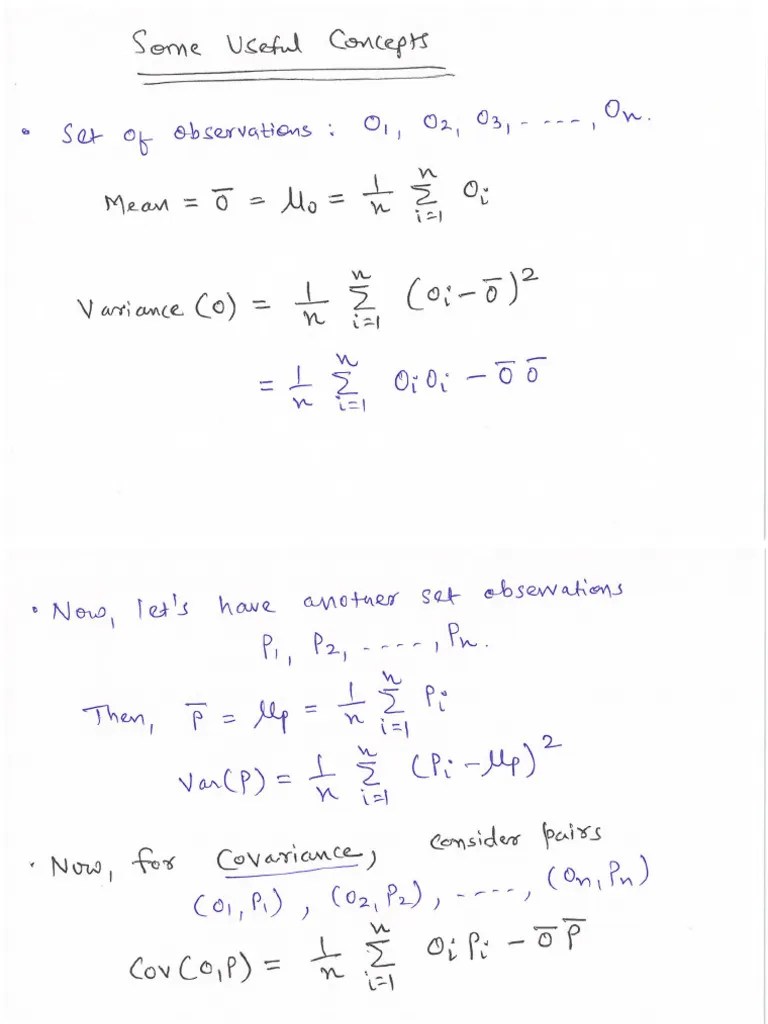 Some Useful Concepts
• Set of observations : O₁, O₂, O₃, - ---, Oₙ.
Mean = O̅ = μₒ = 1/n Σᵢ₌₁ⁿ Oᵢ
Variance (O) = 1/n Σᵢ₌₁ⁿ (Oᵢ - O̅)²
= 1/n Σᵢ₌₁ⁿ OᵢOᵢ - O̅ O̅
• Now, let's have another set observations
P₁, P₂, - - - -, Pₙ.
Then, P̅ = μₚ = 1/n Σᵢ₌₁ⁿ Pᵢ
Var(P) = 1/n Σᵢ₌₁ⁿ (Pᵢ - μₚ)²
• Now, for Covariance, consider pairs
(O₁, P₁), (O₂, P₂), - - - -, (Oₙ, Pₙ)
Cov(O,P) = 1/n Σᵢ₌₁ⁿ OᵢPᵢ - O̅ P̅